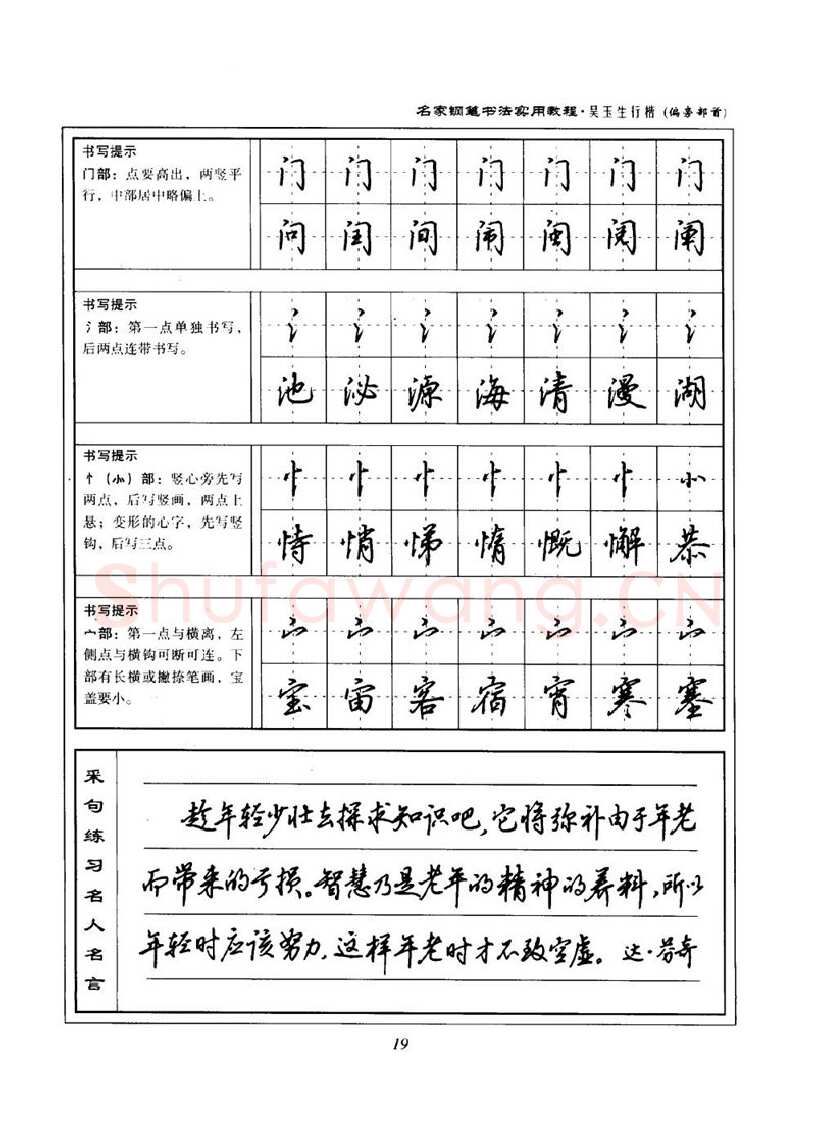 名家钢笔书法实用教程·吴玉生行楷(偏旁部首)
书写提示
门部：点要高出，两竖平
行，中部居中略偏上。
门 门 门 门 门 门 门
问 闰 间 闹 闽 阅 阐
书写提示
氵部：第一点单独书写，
后两点连带书写。
氵 氵 氵 氵 氵 氵 氵
池 泌 源 海 清 漫 湖
书写提示
忄(⺗)部：竖心旁先写
两点，后写竖画，两点上
悬；变形的心字，先写竖
钩，后写三点。
忄 忄 忄 忄 忄 忄 ⺗
恃 悄 悌 惰 慨 懈 恭
书写提示
宀部：第一点与横离，左
侧点与横钩可断可连。下
部有长横或撇捺笔画，宝
盖要小。
宀 宀 宀 宀 宀 宀 宀
宝 宙 客 宿 宵 寒 塞
Shufawang.CN
采句练习名人名言
趁年轻少壮去探求知识吧，它将弥补由于年老
而带来的亏损。智慧乃是老年的精神的养料，所以
年轻时应该努力，这样年老时才不致空虚。 达·芬奇
19